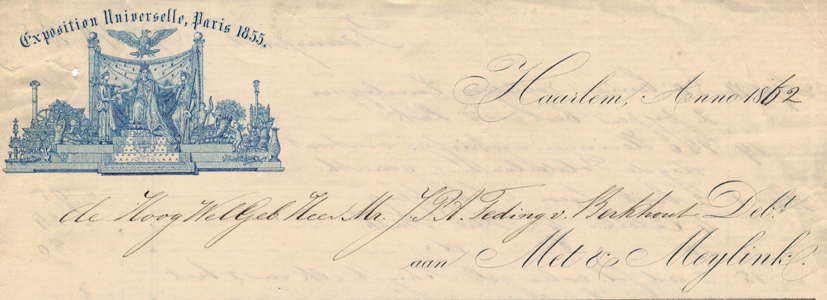 Exposition Universelle, Paris 1855.
Haarlem, Anno 1862
de Hoog WelGeb. Heer Mr. J.P.A. Teding v. Berkhout Debt.
aan Met & Meylink.